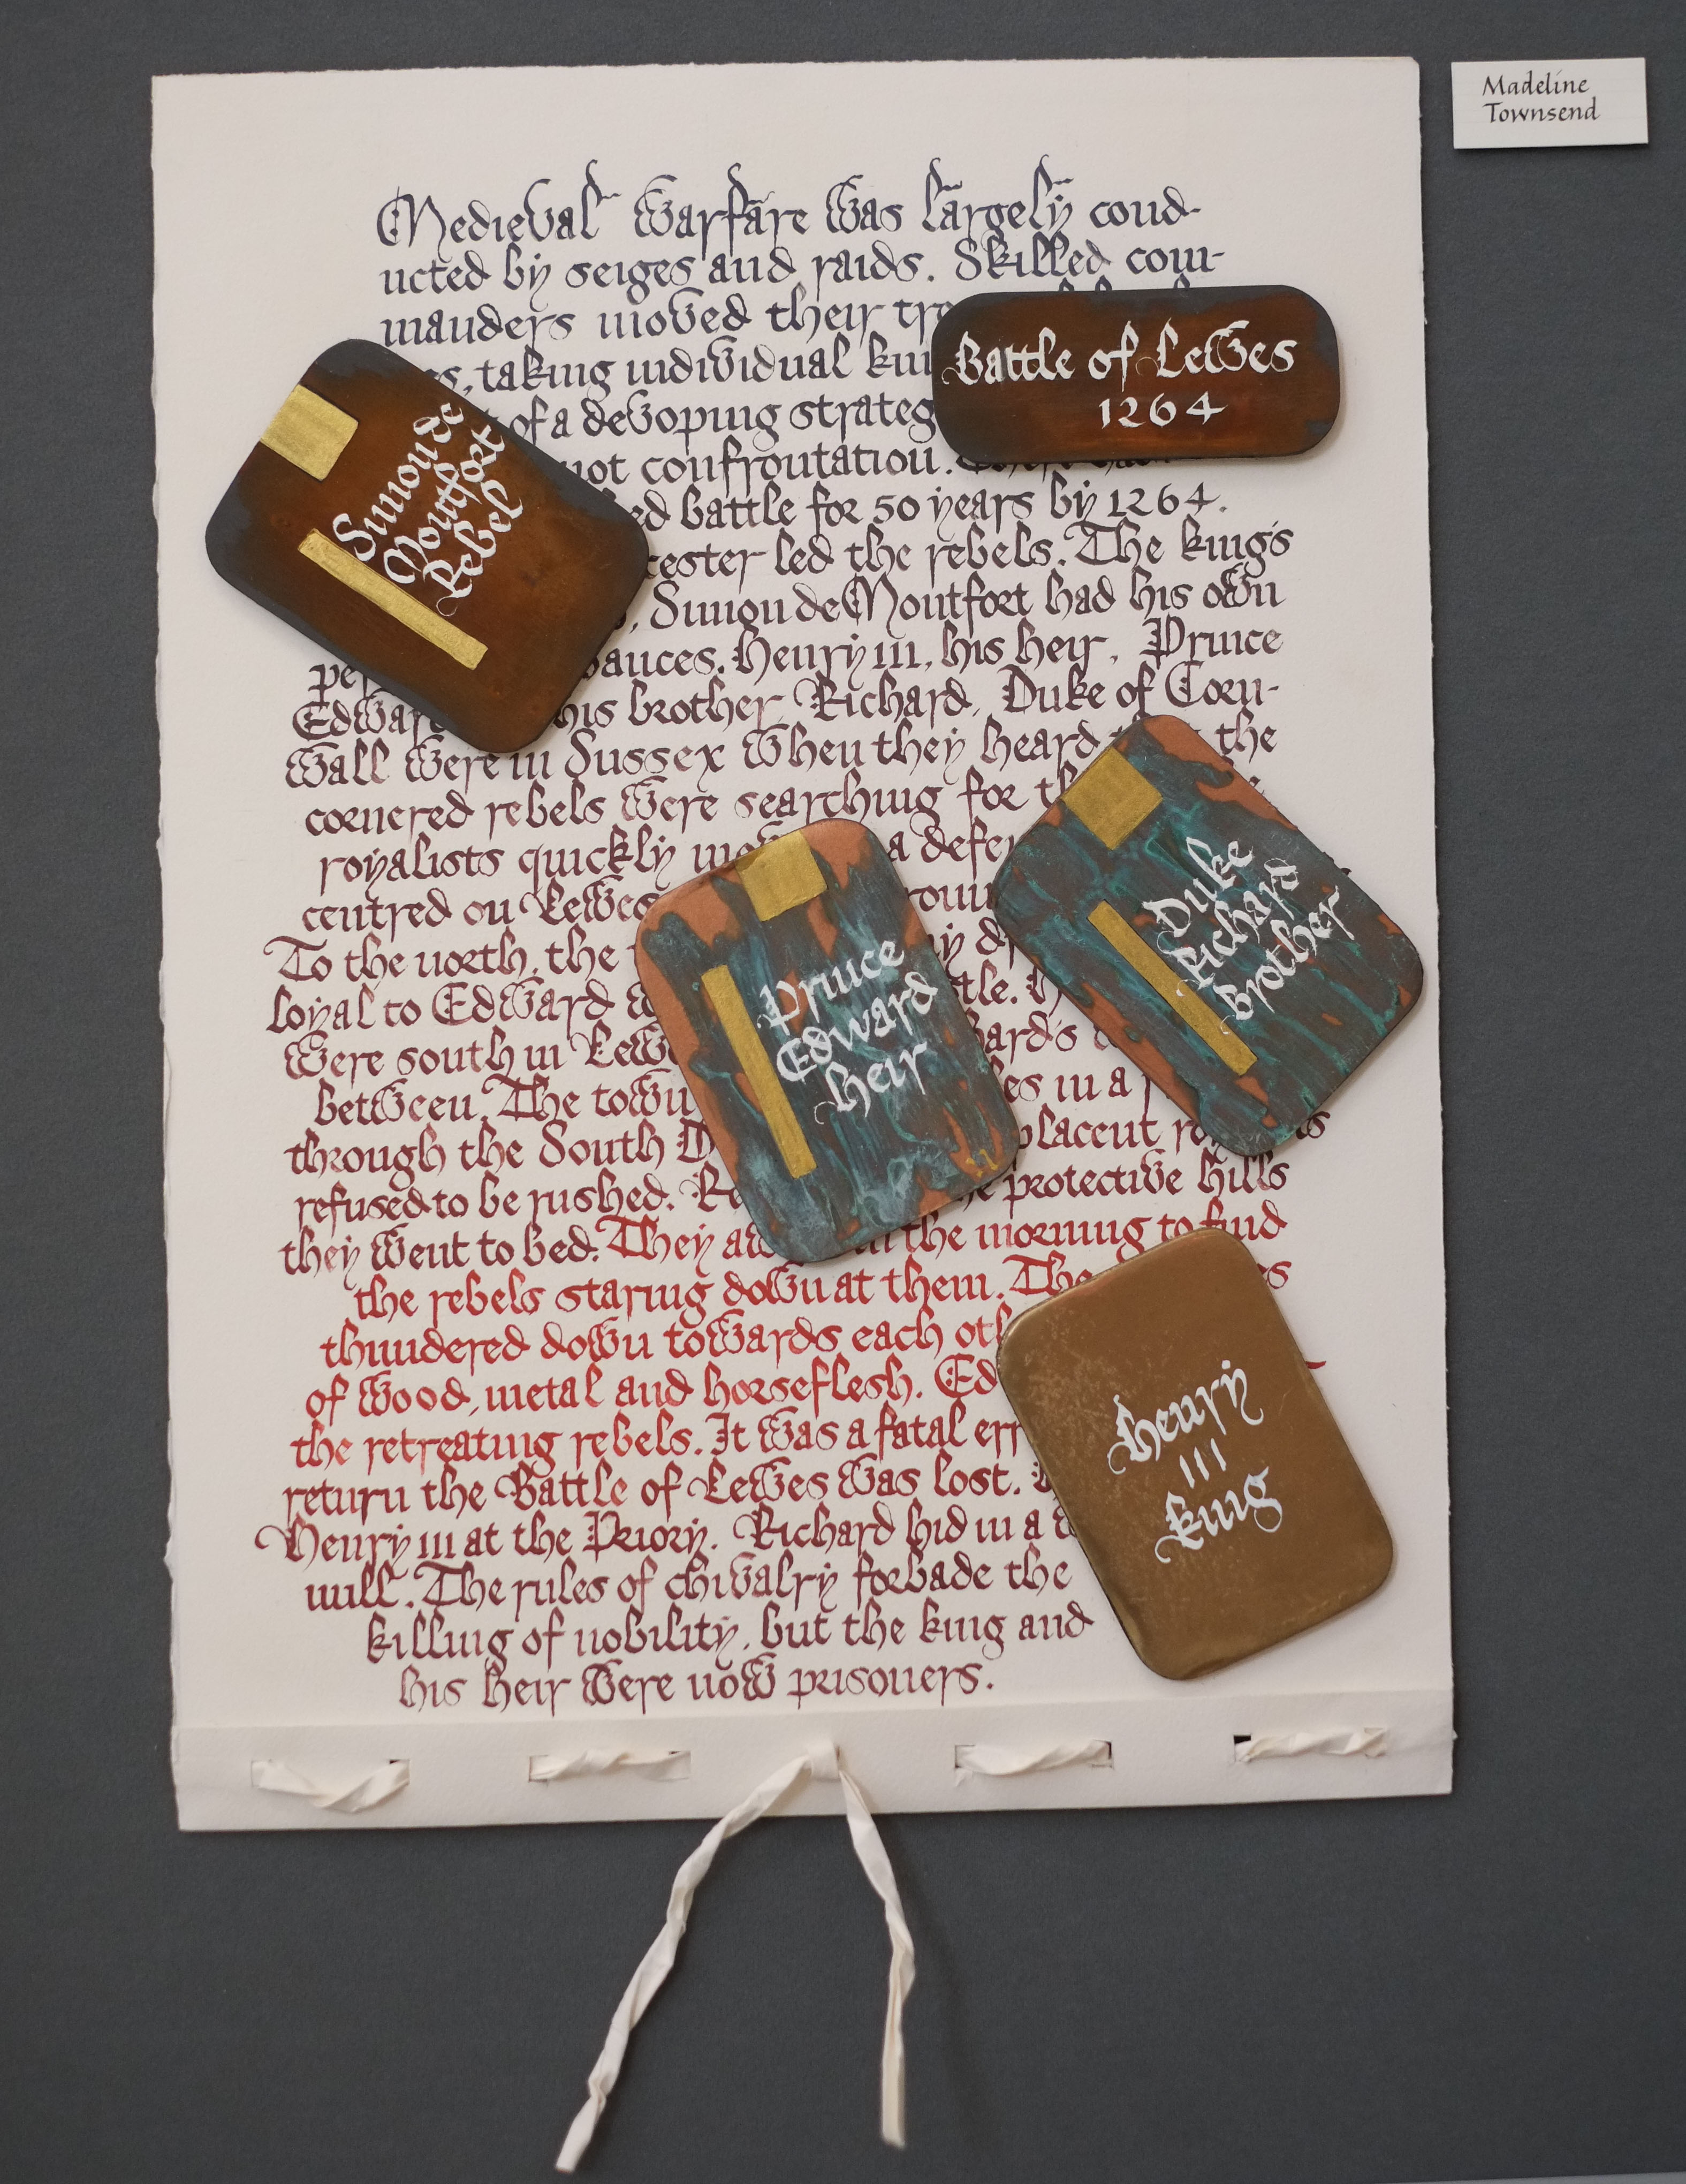 Madeline
Townsend
Medieval warfare was largely cond-
ucted by seiges and raids. Skilled com-
manders moved their
taking individual
of a devoping
not confrontation.
battle for 50 years by 1264.
led the rebels. The king's
Simon de Montfort had his own
Henry III, his heir, Prince
his brother, Richard, Duke of Corn-
wall were in Sussex when they heard the
cornered rebels were searching for
royalists quickly a
centred on Lewes
To the north, the
loyal to Edward
were south in
between. The town in a
through the South
refused to be rushed. protective hills
they went to bed. They the morning to find
the rebels staring down at them.
thundered down towards each
of wood, metal and horseflesh.
the retreating rebels. It was a fatal
return the Battle of Lewes was lost.
Henry III at the Priory. Richard hid in a
mill. The rules of chivalry forbade the
killing of nobility, but the king and
his heir were now prisoners.
Battle of Lewes
1264
Simon de
Montfort
Rebel
Duke
Richard
Brother
Prince
Edward
heir
Henry
III
King